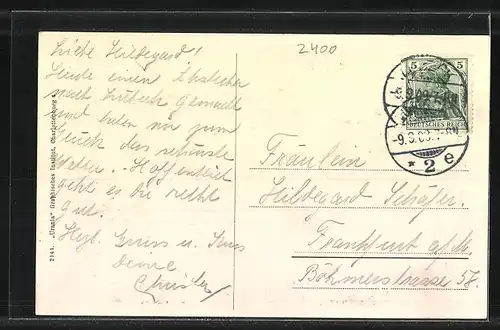 Liebe Hildegard!
Heute einen Abstecher
nach Lübeck gemacht
und haben wir zum
Glück das schönste
Wetter. Hoffentlich
geht es Dir recht
gut.
Herzl. Gruss u. Kuss
Deine
2400
5 5
DEUTSCHES REICH
* 2 e
Fräulein
Hildegard Schäfer.
Frankfurt a/M.
Böhmerstrasse 58.
2144. „Urania“ Graphisches Institut, Charlottenburg